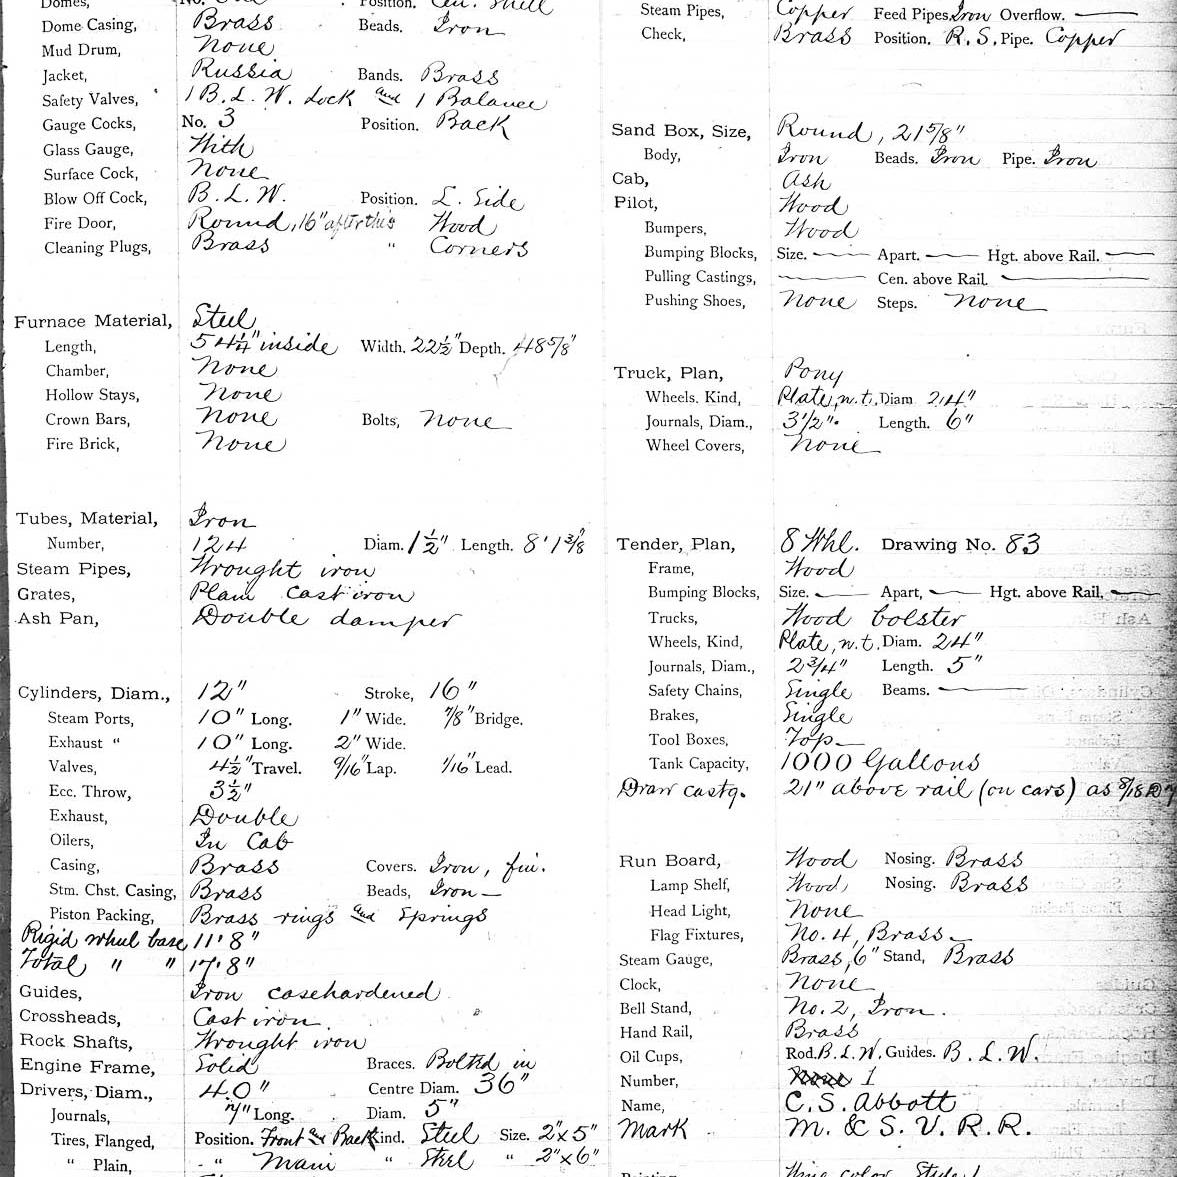 Domes, No. Position. Cen. Shell
Dome Casing, Brass Beads. Iron
Mud Drum, None
Jacket, Russia Bands. Brass
Safety Valves, 1 B. L. W. Lock and 1 Balance
Gauge Cocks, No. 3 Position. Back
Glass Gauge, With
Surface Cock, None
Blow Off Cock, B. L. W. Position. L. Side
Fire Door, Round, 16" after this Wood
Cleaning Plugs, Brass " Corners
Furnace Material, Steel
Length, 54 1/4" inside Width. 22 1/2" Depth. 48 5/8"
Chamber, None
Hollow Stays, None
Crown Bars, None Bolts, None
Fire Brick, None
Tubes, Material, Iron
Number, 124 Diam. 1 1/2" Length. 8' 1 3/8
Steam Pipes, Wrought iron
Grates, Plain cast iron
Ash Pan, Double damper
Cylinders, Diam., 12" Stroke, 16"
Steam Ports, 10" Long. 1" Wide. 7/8" Bridge.
Exhaust " 10" Long. 2" Wide.
Valves, 4 1/2" Travel. 9/16" Lap. 1/16" Lead.
Ecc. Throw, 3 1/2"
Exhaust, Double
Oilers, In Cab
Casing, Brass Covers. Iron, fin.
Stm. Chst. Casing, Brass Beads, Iron
Piston Packing, Brass rings and Springs
Rigid wheel base 11' 8"
Total " " 17' 8"
Guides, Iron casehardened
Crossheads, Cast iron
Rock Shafts, Wrought iron
Engine Frame, Solid Braces. Bolted in
Drivers, Diam., 40" Centre Diam. 36"
Journals, 7" Long. Diam. 5"
Tires, Flanged, Position. Front and Back Kind. Steel Size. 2" x 5"
" Plain, " Main " Steel " 2" x 6"
Steam Pipes, Copper Feed Pipes, Iron Overflow. —
Check, Brass Position. R. S. Pipe. Copper
Sand Box, Size, Round, 21 5/8"
Body, Iron Beads. Iron Pipe. Iron
Cab, Ash
Pilot, Wood
Bumpers, Wood
Bumping Blocks, Size. — Apart. — Hgt. above Rail. —
Pulling Castings, — Cen. above Rail. —
Pushing Shoes, None Steps. None
Truck, Plan, Pony
Wheels. Kind, Plate, w. t. Diam 24"
Journals, Diam., 3 1/2" Length. 6"
Wheel Covers, None
Tender, Plan, 8 Whl. Drawing No. 83
Frame, Wood
Bumping Blocks, Size. — Apart, — Hgt. above Rail. —
Trucks, Wood bolster
Wheels, Kind, Plate, w. t. Diam. 24"
Journals, Diam., 2 3/4" Length. 5"
Safety Chains, Single Beams. —
Brakes, Single
Tool Boxes, Top
Tank Capacity, 1000 Gallons
Draw castg. 21" above rail (on cars) as 8/18 D
Run Board, Wood Nosing. Brass
Lamp Shelf, Wood, Nosing. Brass
Head Light, None
Flag Fixtures, No. 4, Brass
Steam Gauge, Brass, 6" Stand, Brass
Clock, None
Bell Stand, No. 2, Iron.
Hand Rail, Brass
Oil Cups, Rod. B. L. W. Guides. B. L. W.
Number, None 1
Name, C. S. Abbott
Mark M. & S. V. R. R.
Painting, Wine color Style 1